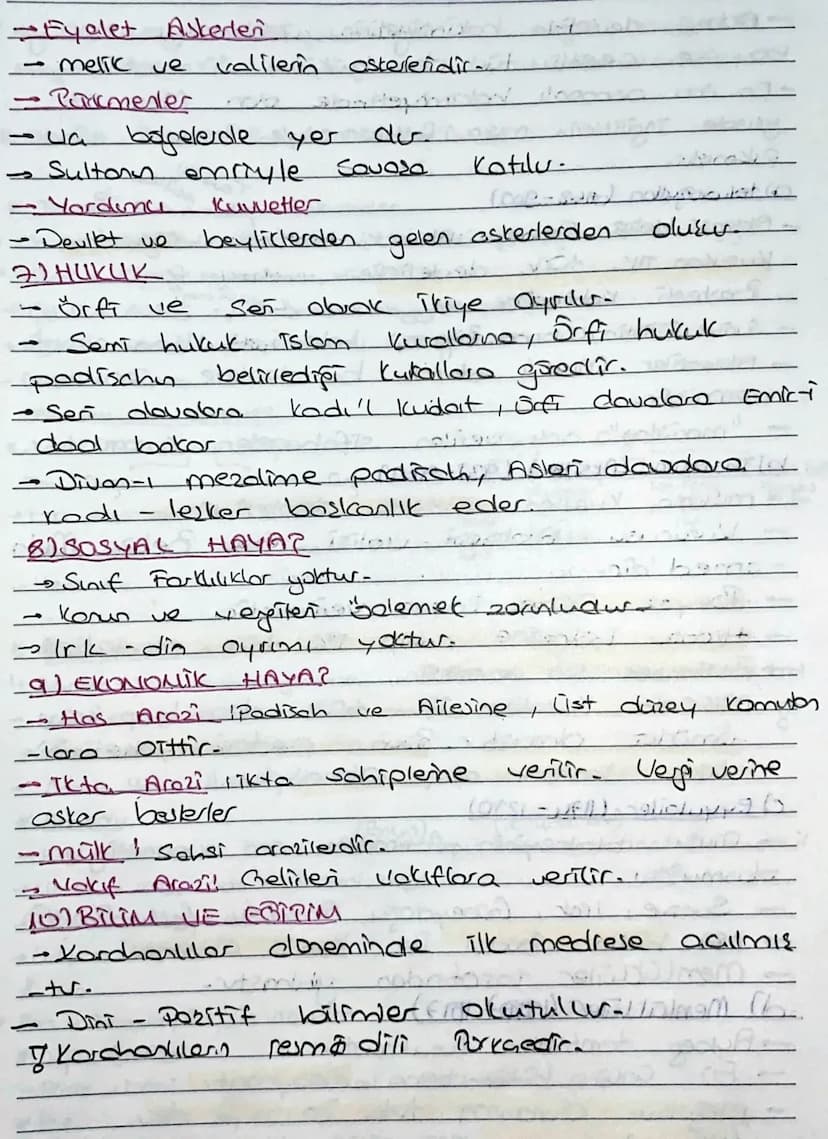 → Eyalet Askerleri
→ melik ve valilerin askerleridir.
→ Türkmenler
→ Uc bölgelerde yer alır.
→ Sultanın emriyle savaşa katılır.
→ Yardımcı Kuvvetler
→ Devlet ve beyliklerden gelen askerlerden oluşur.
7) HUKUK
→ Örfi ve Şeri olarak ikiye ayrılır.
→ Şerri hukuk İslam kurallarına, Örfi hukuk
padişahın belirlediği kurallara göredir.
→ Şeri davalara kadı'l kudat, örfi davalara Emir-i
dad bakar
→ Divan-ı mezalime padişah, Askeri davalara
kadı-leşker başkanlık eder.
8) SOSYAL HAYAT
→ Sınıf Farklılıklar yoktur.
→ Kanun ve vergileri ödemek zorunludur.
→ Irk - din ayrımı yoktur.
9) EKONOMİK HAYAT
→ Has Arazi: Padişah ve Ailesine, üst düzey komutan
-lara aittir.
→ İkta Arazi: ikta sahiplerine verilir. Vergi yerine
asker beslerler
→ mülk: Şahsi arazilerdir.
→ Vakıf Arazi: Gelirleri vakıflara verilir.
10) BİLİM VE EĞİTİM
→ Karahanlılar döneminde ilk medrese açılmış
-tır.
→ Dini - Pozitif bilimler okutulur.
Karahanlıların resmi dili Türkçedir.